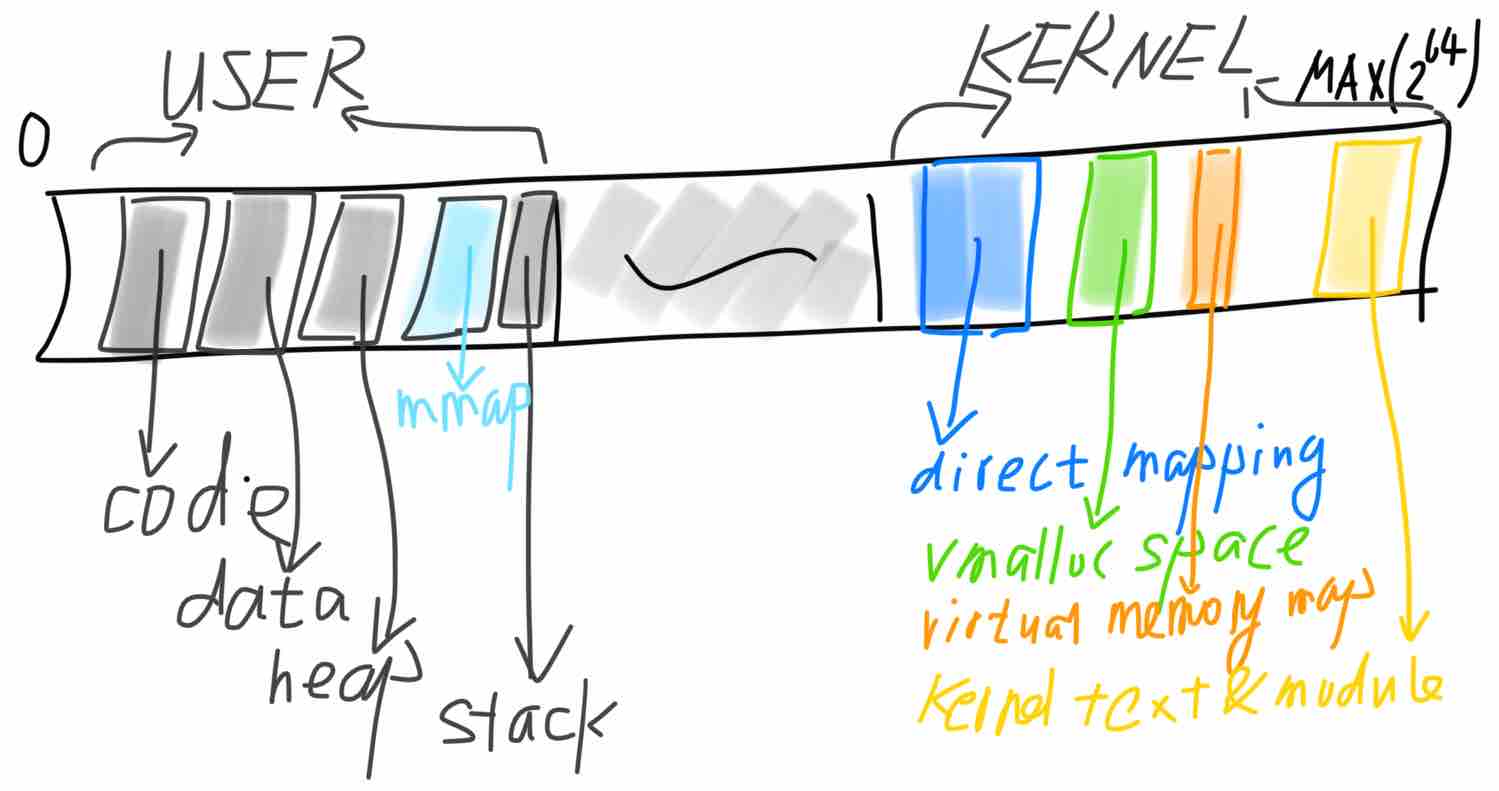 USER
KERNEL
MAX(2^64)
0
mmap
code
data
heap
stack
direct mapping
vmalloc space
virtual memory map
Kernel text & module